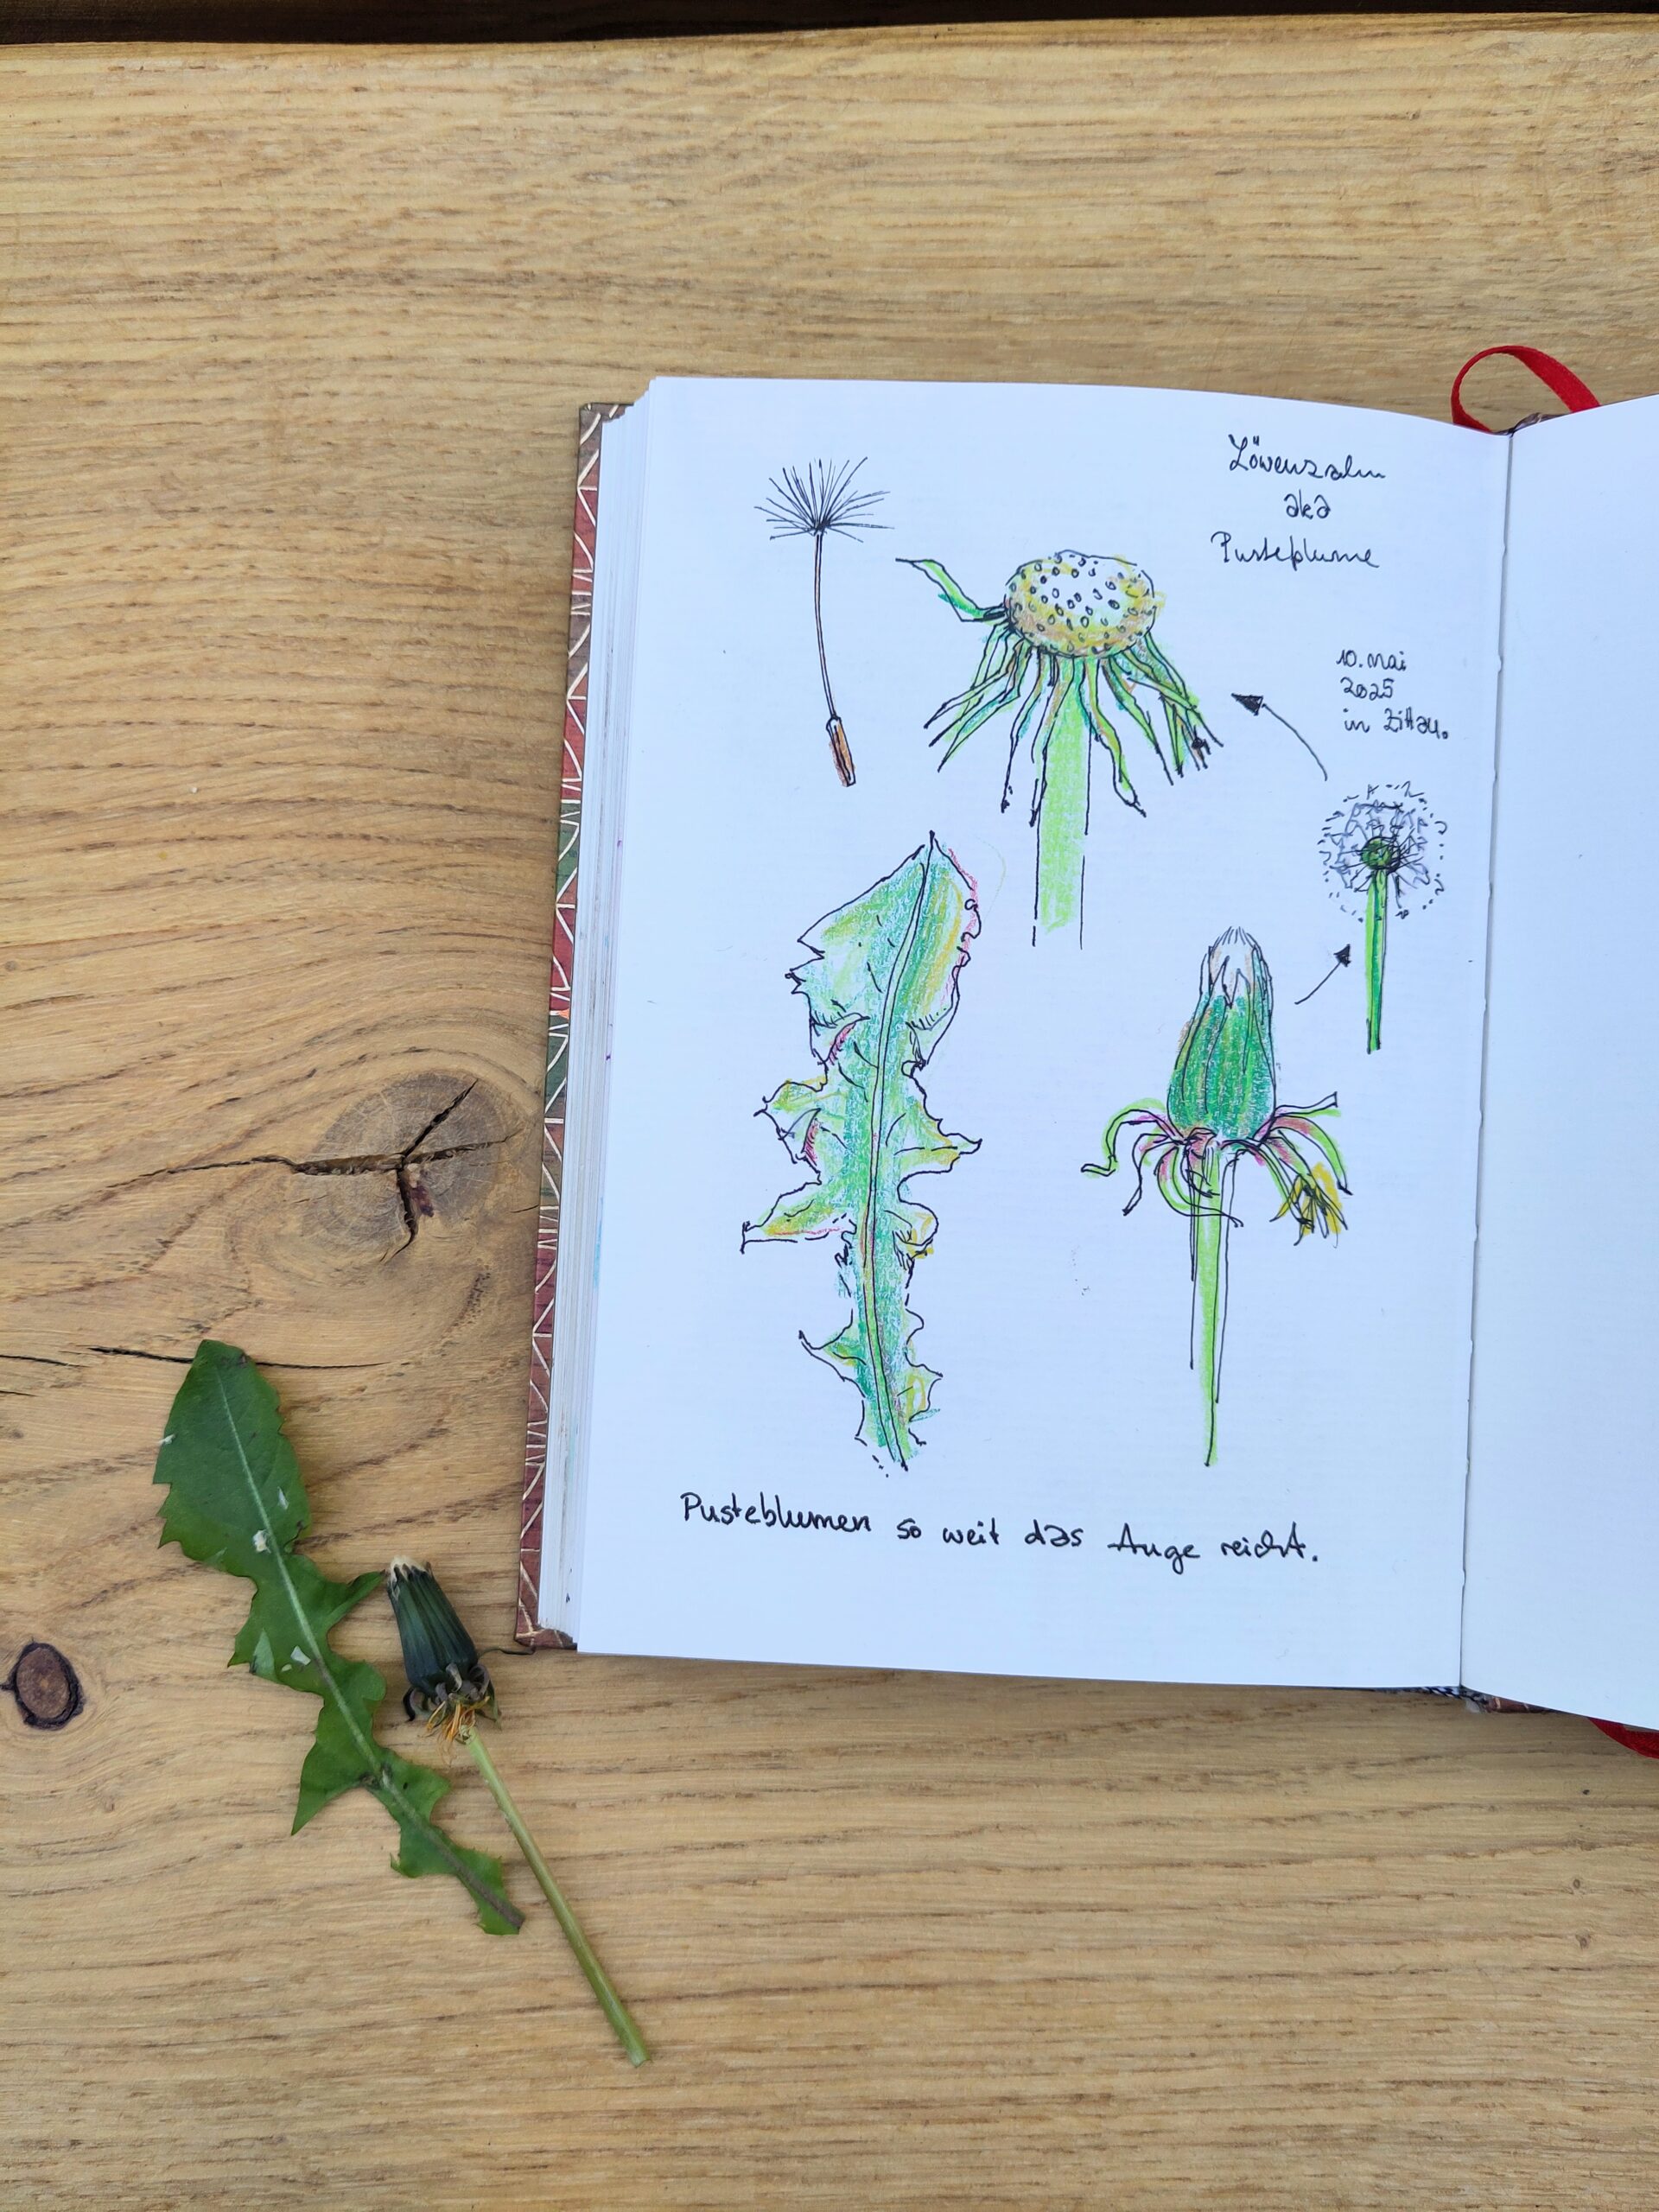 Löwenzahn
aka
Pusteblume
10. Mai
2025
in Zittau.
Pusteblumen so weit das Auge reicht.